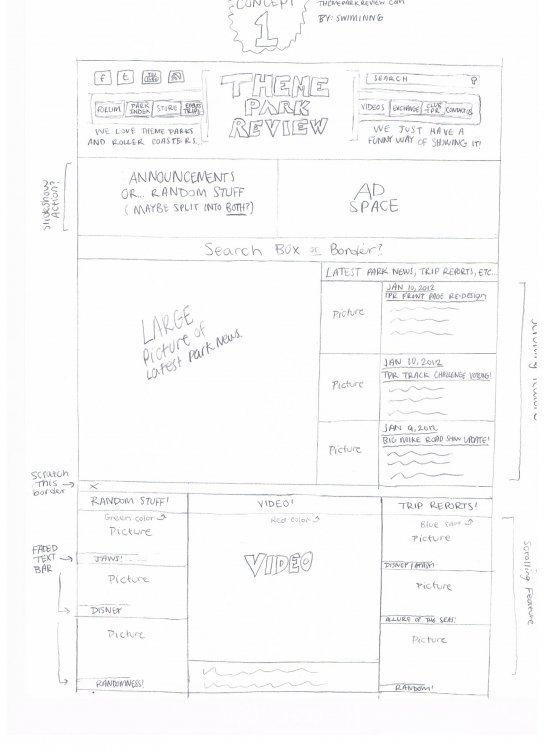 CONCEPT
1
THEMEPARKREVIEW.COM
BY: SWIMINNG
f t
THEME
PARK
REVIEW
SEARCH
FORUM PARK INDEX STORE
VIDEOS EXCHANGE CLUB TPR CONTACT US
WE LOVE THEME PARKS
AND ROLLER COASTERS...
WE JUST HAVE A
FUNNY WAY OF SHOWING IT!
SlideShow
Action?
ANNOUNCEMENTS
OR... RANDOM STUFF
(MAYBE SPLIT INTO BOTH?)
AD
SPACE
Search Box or Border?
LATEST PARK NEWS, TRIP REPORTS, ETC...
LARGE
Picture of
Latest Park News.
Picture
JAN 10, 2012
TPR FRONT PAGE RE-DESIGN
Picture
JAN 10, 2012
TPR TRACK CHALLENGE VOTING!
Picture
JAN 9, 2012
BIG MIKE ROAD SHOW UPDATE!
Scratch
This
border
X
RANDOM STUFF!
VIDEO!
TRIP REPORTS!
Green color
Red color
Blue color
Picture
Picture
VIDEO
FADED
TEXT
BAR
JAWS!
DISNEY
Picture
Picture
DISNEY
ALLURE OF THE SEAS!
Picture
Picture
RANDOMNESS!
RANDOM!
Scrolling Feature